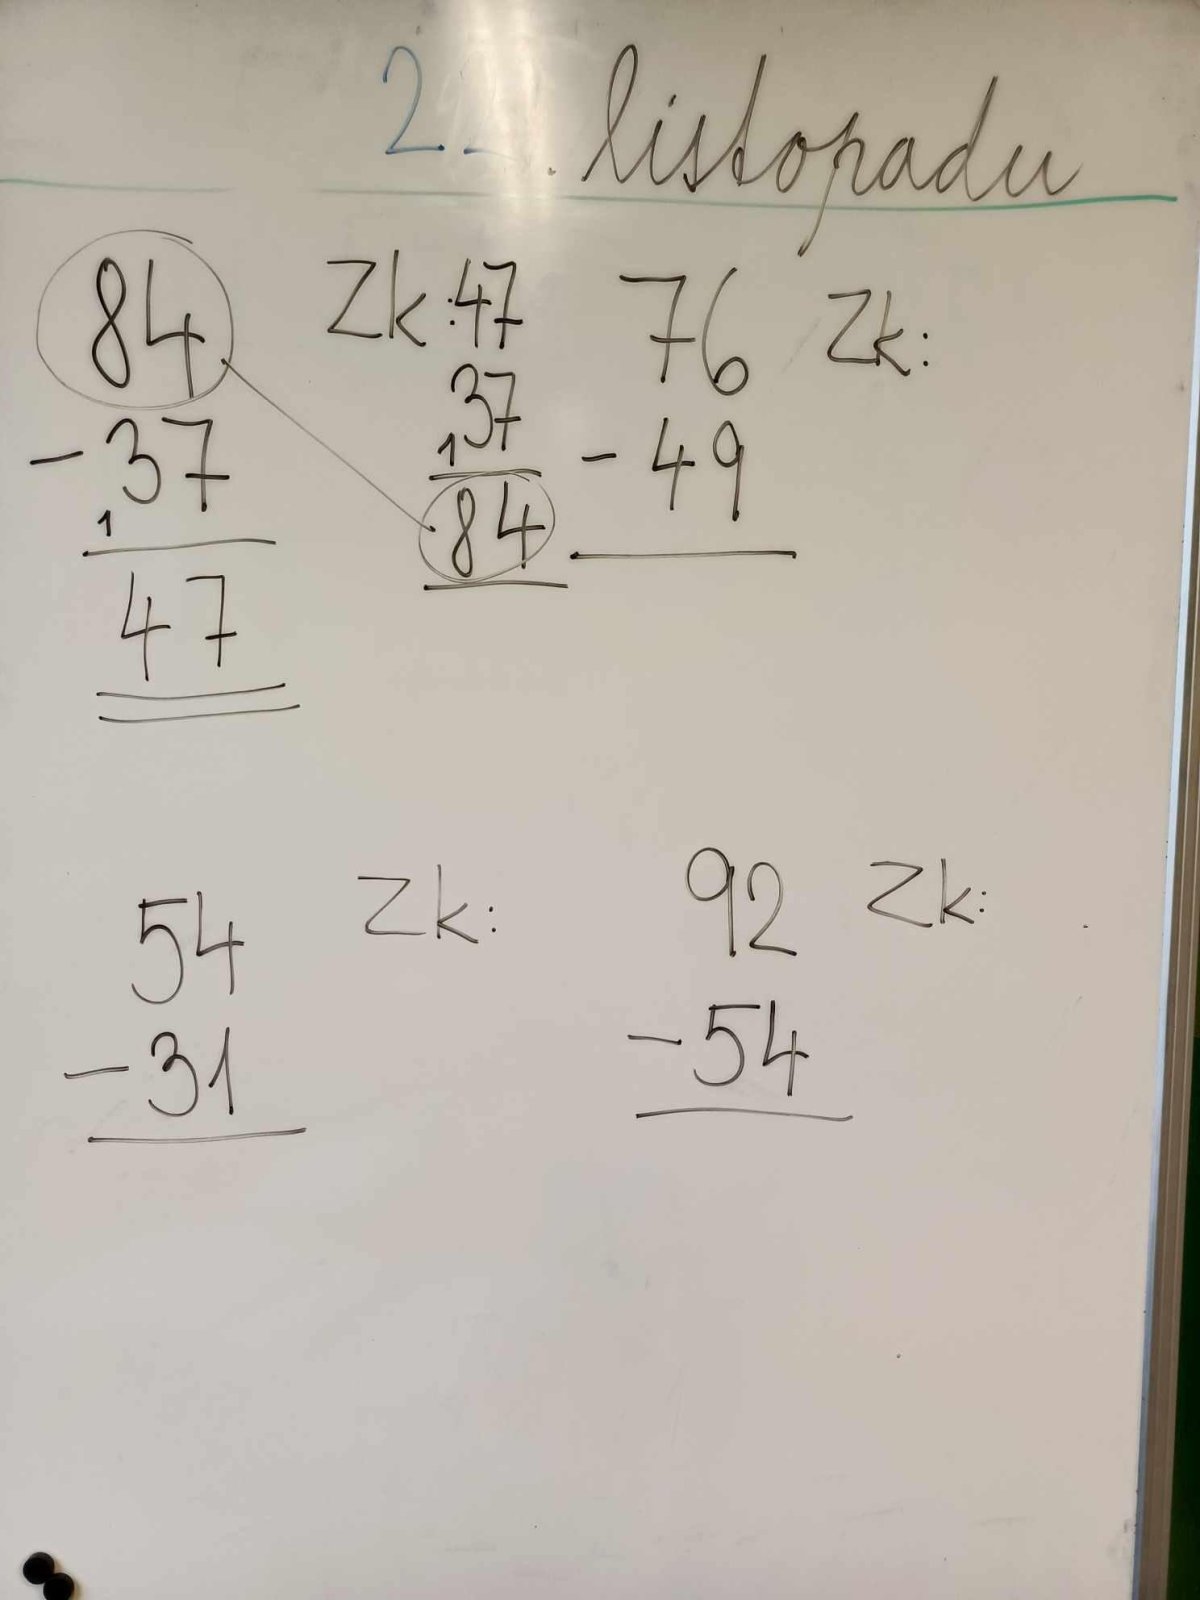 2 . listopadu
84
- 37
1
47
Zk: 47
37
1
84
76
- 49
Zk:
54
- 31
Zk:
92
- 54
Zk: